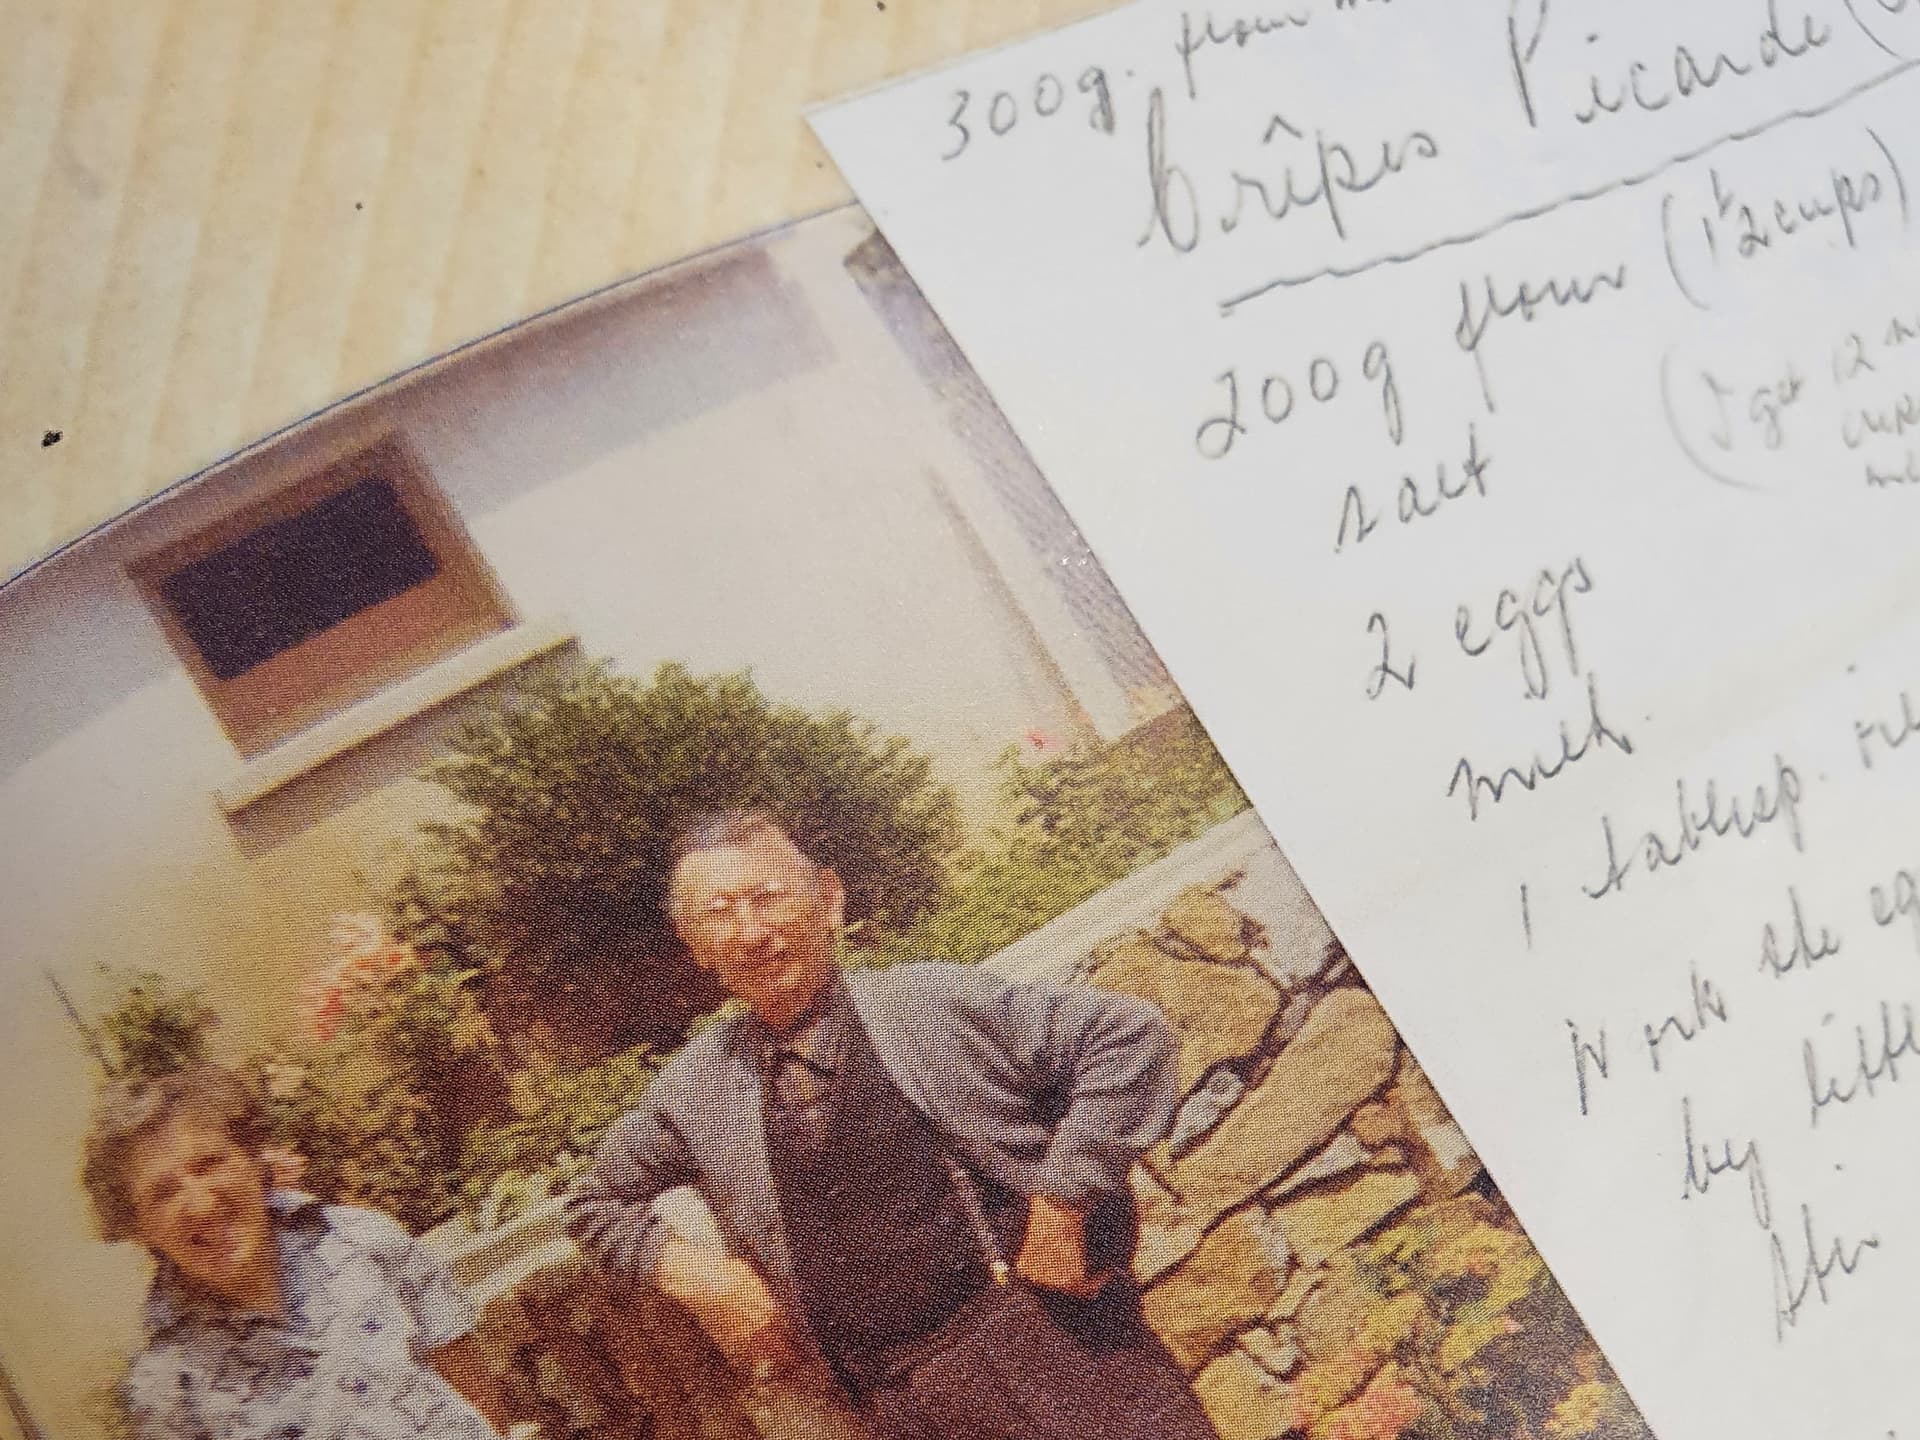 300g. flour
Crêpes Picarde (
200g flour (1½ cups)
salt (I get 12
2 eggs
milk.
1 tablesp.
Work the eg
by little
stir